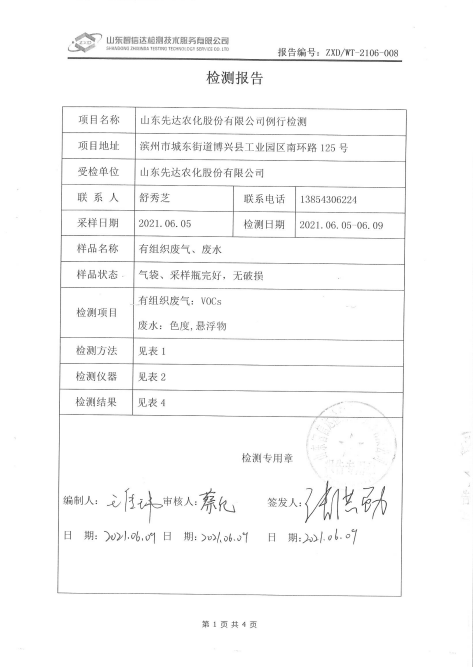 山东智信达检测技术服务有限公司
SHANDONG ZHIXINDA TESTING TECHNOLOGY SERVICE CO.,LTD
报告编号：ZXD/WT-2106-008
检测报告
项目名称 山东先达农化股份有限公司例行检测
项目地址 滨州市城东街道博兴县工业园区南环路 125 号
受检单位 山东先达农化股份有限公司
联 系 人 舒秀芝 联系电话 13854306224
采样日期 2021.06.05 检测日期 2021.06.05-06.09
样品名称 有组织废气、废水
样品状态 气袋、采样瓶完好，无破损
检测项目 有组织废气：VOCs
废水：色度,悬浮物
检测方法 见表 1
检测仪器 见表 2
检测结果 见表 4
检测专用章
编制人： 审核人： 签发人：
日 期：2021.06.09 日 期：2021.06.09 日 期：2021.06.09
第 1 页 共 4 页